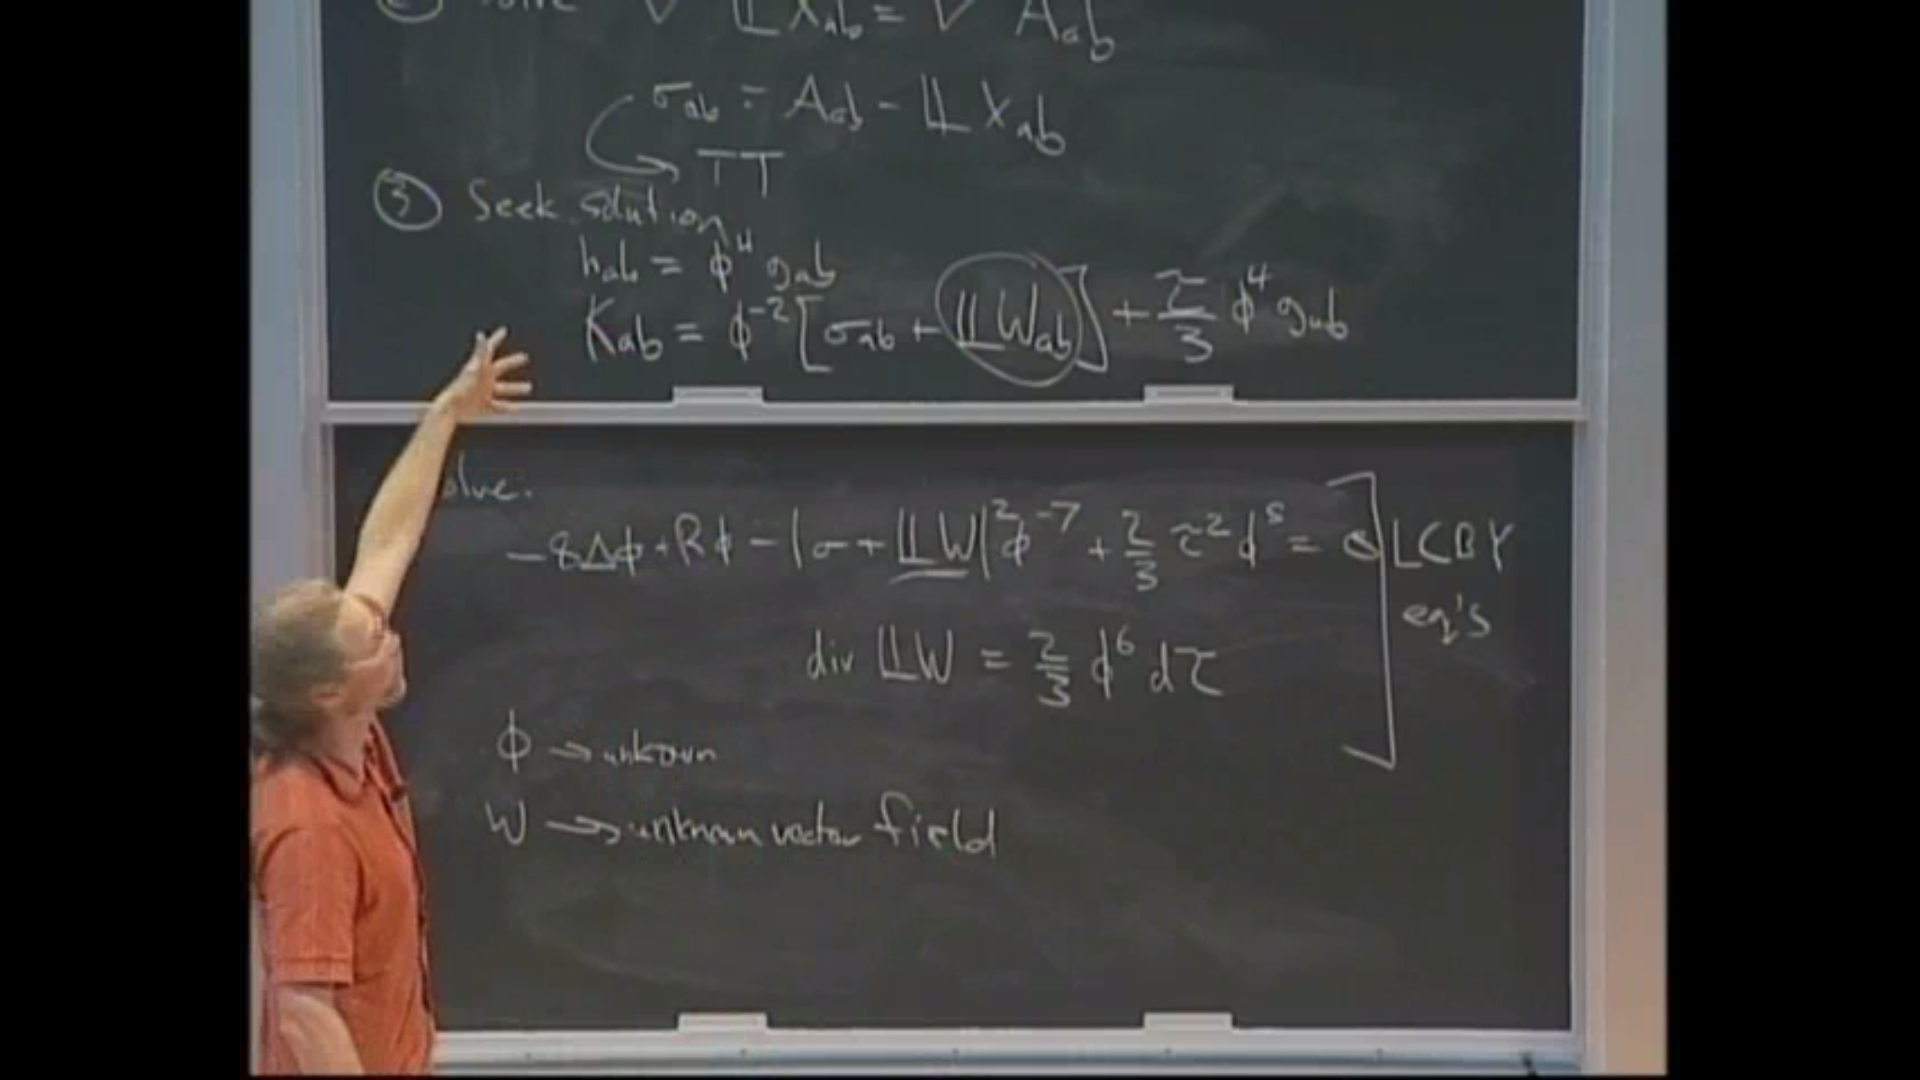 ② Solve ∇ 𝕃X_ab = ∇ A_ab
σ_ab = A_ab - 𝕃X_ab
TT
③ Seek solution
h_ab = ϕ^4 g_ab
K_ab = ϕ^-2 [σ_ab + 𝕃W_ab] + τ/3 ϕ^4 g_ab
olve.
-8Δϕ + Rϕ - |σ + 𝕃W|^2 ϕ^-7 + 2/3 τ^2 ϕ^5 = 0
LCBY
eq's
div 𝕃W = 2/3 ϕ^6 dτ
ϕ → unkown
W → unknown vector field